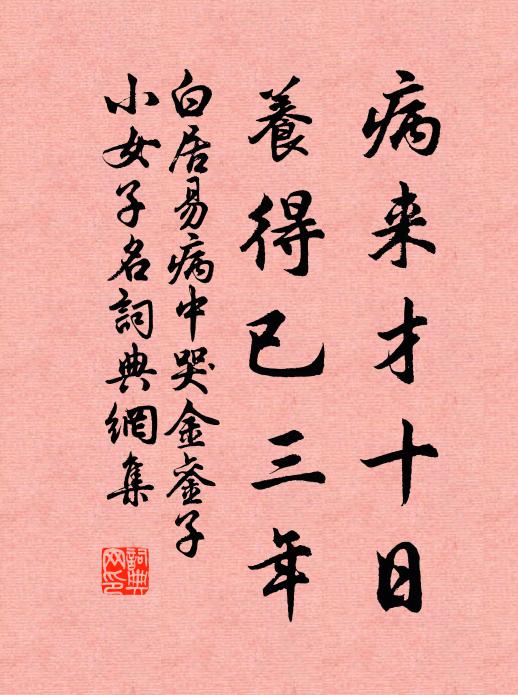 病来才十日
養得已三年
白居易病中哭金銮子
小女子名詞典網集
詞典
网印